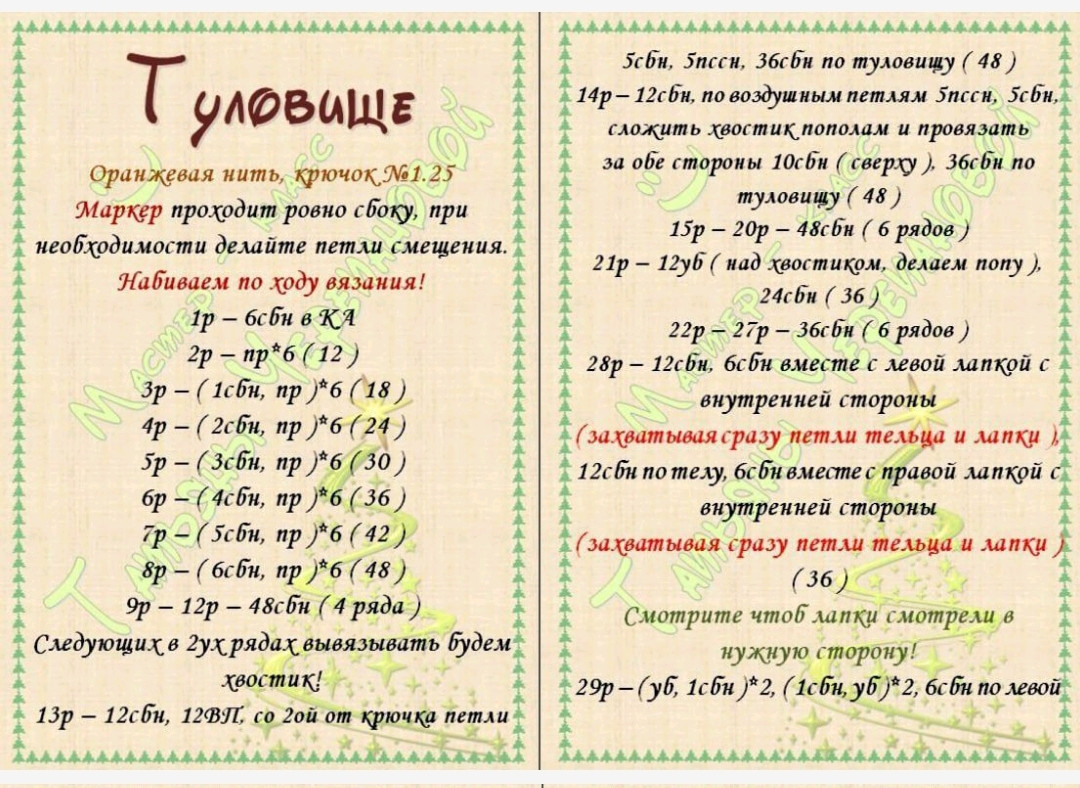 Туловище
Оранжевая нить, крючок №1.25
Маркер проходит ровно сбоку, при
необходимости делайте петли смещения.
Набиваем по ходу вязания!
1р – 6сбн в КА
2р – пр*6 ( 12 )
3р – ( 1сбн, пр )*6 ( 18 )
4р – ( 2сбн, пр )*6 ( 24 )
5р – ( 3сбн, пр )*6 ( 30 )
6р – ( 4сбн, пр )*6 ( 36 )
7р – ( 5сбн, пр )*6 ( 42 )
8р – ( 6сбн, пр )*6 ( 48 )
9р – 12р – 48сбн ( 4 ряда )
Следующих в 2ух рядах вывязывать будем
хвостик!
13р – 12сбн, 12ВП, со 2ой от крючка петли
5сбн, 5пссн, 36сбн по туловищу ( 48 )
14р – 12сбн, по воздушным петлям 5пссн, 5сбн,
сложить хвостик пополам и провязать
за обе стороны 10сбн ( сверху ), 36сбн по
туловищу ( 48 )
15р – 20р – 48сбн ( 6 рядов )
21р – 12уб ( над хвостиком, делаем попу ),
24сбн ( 36 )
22р – 27р – 36сбн ( 6 рядов )
28р – 12сбн, 6сбн вместе с левой лапкой с
внутренней стороны
( захватывая сразу петли тельца и лапки ),
12сбн по телу, 6сбн вместе с правой лапкой с
внутренней стороны
( захватывая сразу петли тельца и лапки )
( 36 )
Смотрите чтоб лапки смотрели в
нужную сторону!
29р – ( уб, 1сбн )*2, ( 1сбн, уб )*2, 6сбн по левой
Мастер - класс
Татьяны Черемновой
Мастер - класс
Татьяны Черемновой